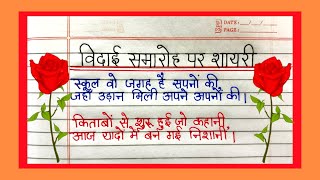 DATE: / /
PAGE:
विदाई समारोह पर शायरी
स्कूल वो जगह हैं सपनों की,
जहाँ उड़ान मिली अपने अपनों की।
किताबों से शुरू हुई जो कहानी,
आज यादों में बन गई निशानी।